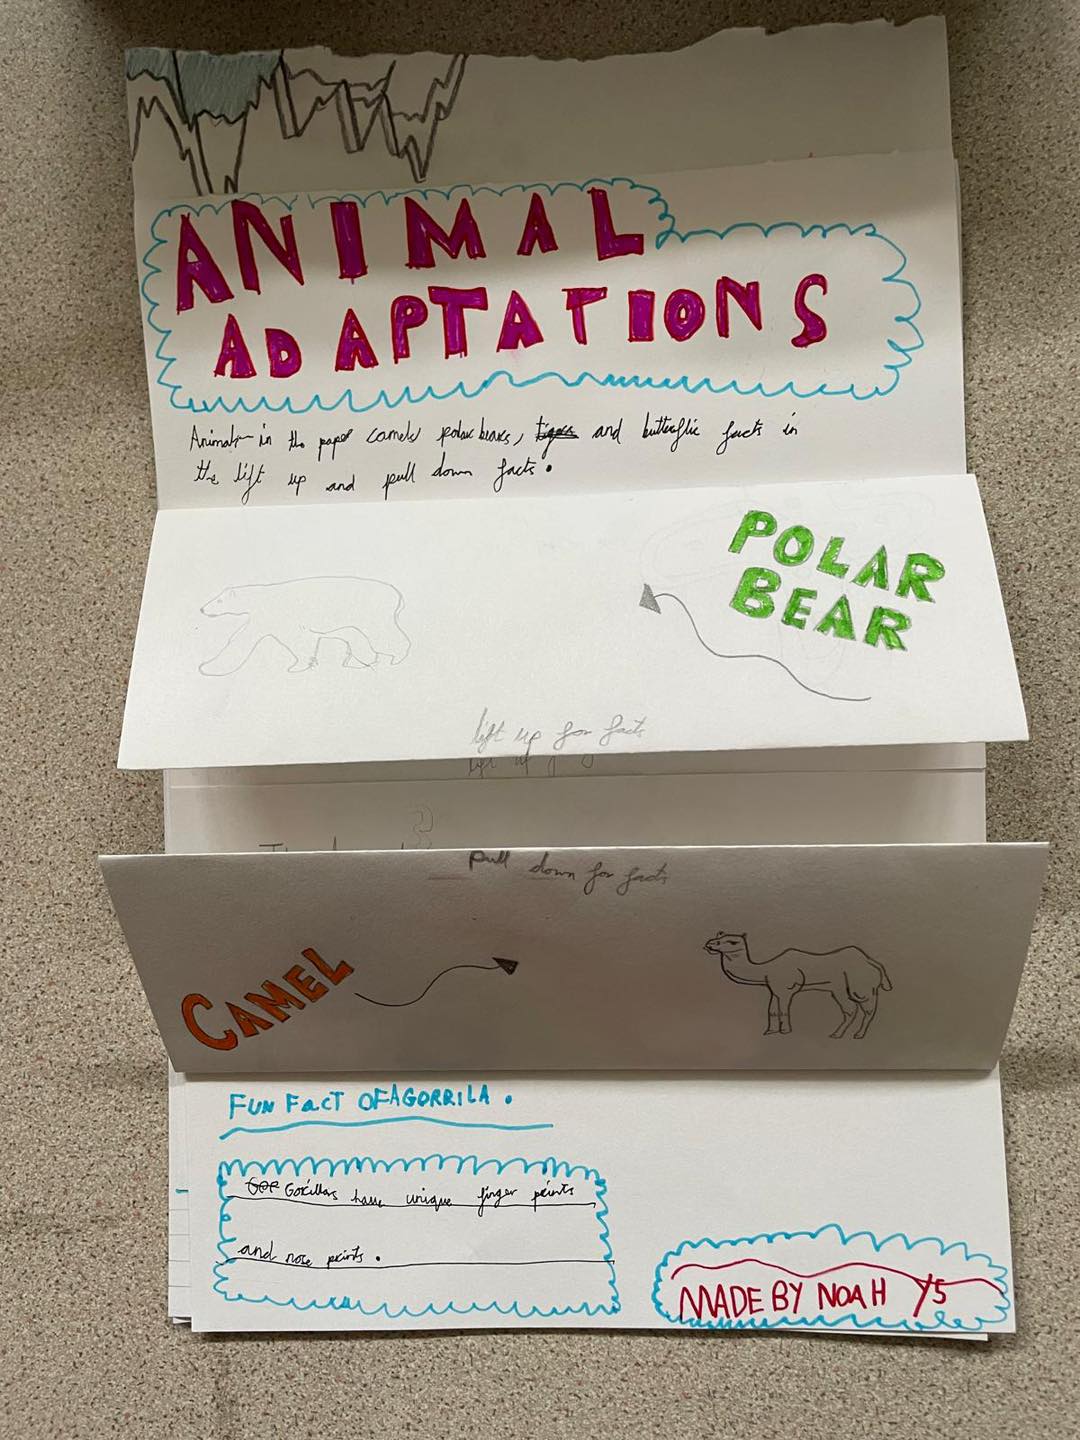 ANIMAL
ADAPTATIONS
Animals in the paper camels polar bears, and butterflie facts in
the lift up and pull down facts.
POLAR
BEAR
lift up for facts
lift up
Pull down for facts
CAMEL
FUN FacT OFAGORRILA.
Gorillas have unique finger prints
and nose prints.
MADE BY NOAH Y5